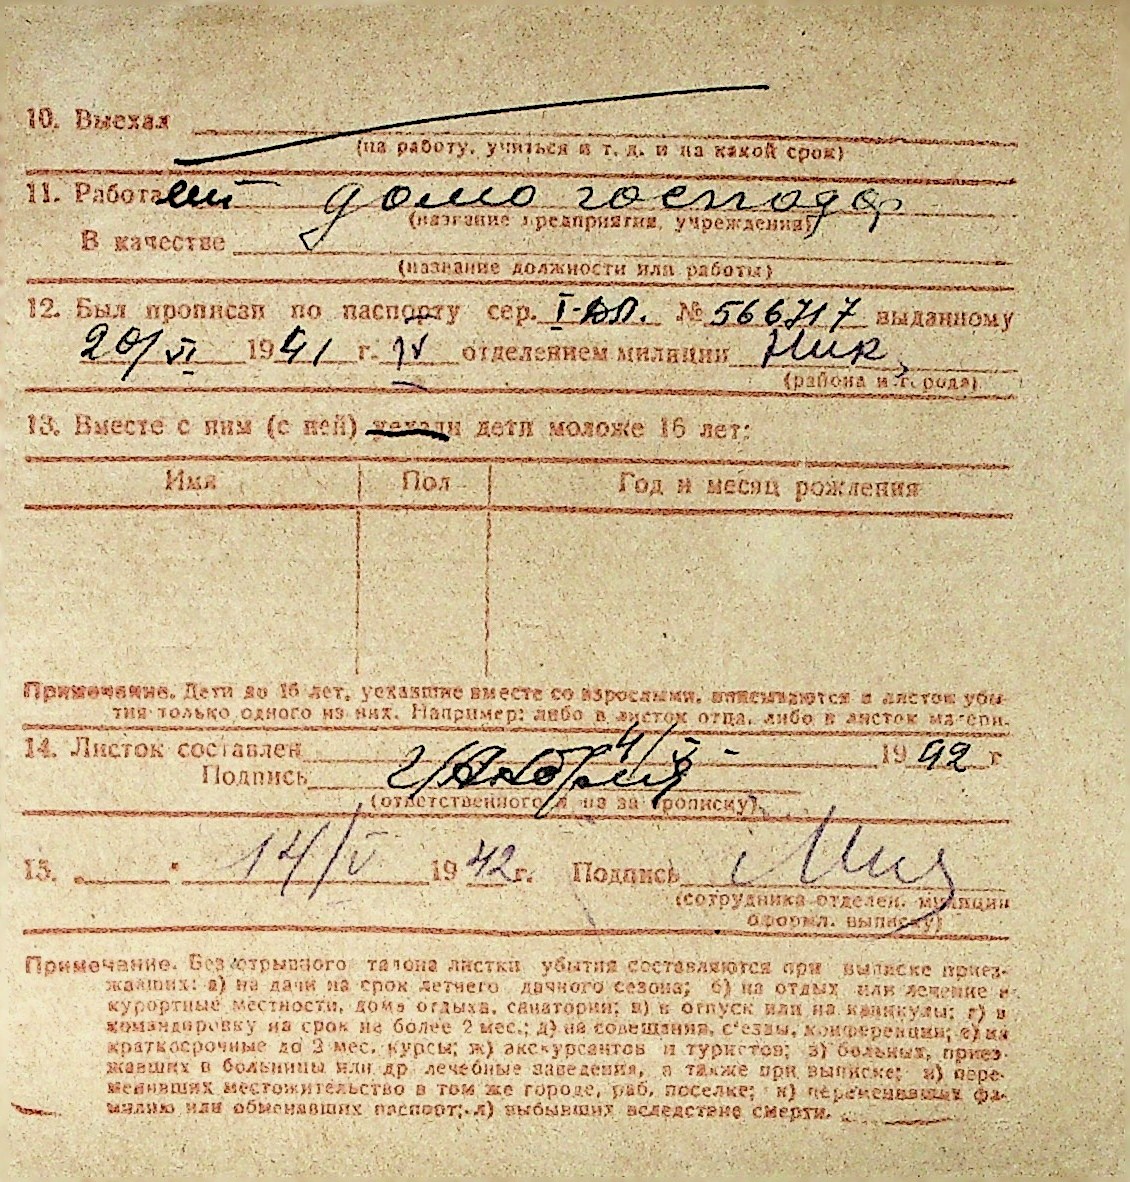 10. Выехал
(на работу, учиться и т. д. и на какой срок)
11. Работает домо господар
(название предприятия, учреждения)
В качестве
(название должности или работы)
12. Был прописан по паспорту сер. I-ВЛ. № 566717 выданному
20/VI 1941 г. IV отделением милиции Ник
(района и города)
13. Вместе с ним (с ней) уехали дети моложе 16 лет:
Имя Пол Год и месяц рождения
Примечание. Дети до 16 лет, уехавшие вместе со взрослыми, вписываются в листок убы-
тия только одного из них. Например: либо в листок отца, либо в листок матери.
14. Листок составлен 4/V - 1942 г
Подпись
(ответственного за прописку)
15. „ " 14/V 1942 г. Подпись
(сотрудника отделен. милиции
оформл. выписку)
Примечание. Без отрывного талона листки убытия составляются при выписке приез-
жавших: а) на дачи на срок летнего дачного сезона; б) на отдых или лечение в
курортные местности, дома отдыха, санатории; в) в отпуск или на каникулы; г) в
командировку на срок не более 2 мес.; д) на совещания, с'езды, конференции; е) на
краткосрочные до 3 мес. курсы; ж) экскурсантов и туристов; з) больных, приез-
жавших в больницы или др лечебные заведения, а также при выписке; и) пере-
менивших местожительство в том же городе, раб. поселке; к) переменивших фа-
милию или обменявших паспорт; л) выбывших вследствие смерти.